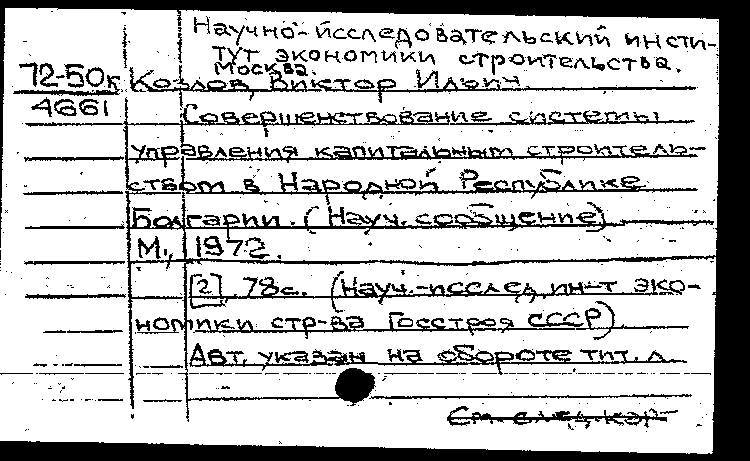 Научно-исследовательский инсти-
тут экономики строительства.
Москва.
72-50к Козлов, Виктор Ильич.
4661 Совершенствование системы
управления капитальным строитель-
ством в Народной Республике
Болгарии. (Науч. сообщение)
М., 1972.
[2], 78с. (Науч.-исслед. ин-т эко-
номики стр-ва Госстроя СССР).
Авт. указан на обороте тит. л.
См. след. кар-